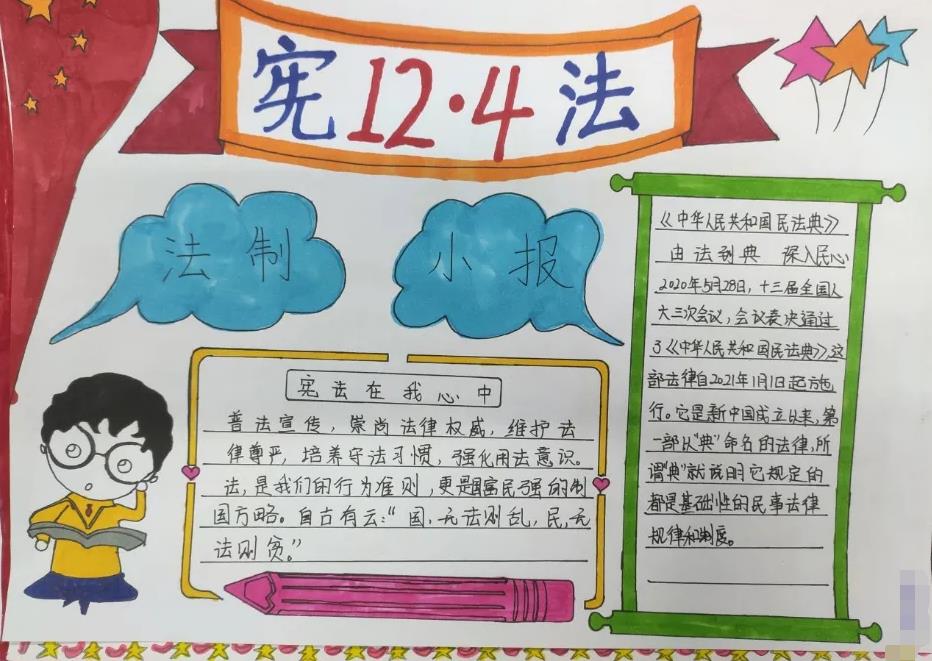 宪12·4法
法制
小报
宪法在我心中
普法宣传，崇尚法律权威，维护法
律尊严，培养守法习惯，强化用法意识。
法，是我们的行为准则，更是国富民强的制
国方略。自古有云：“国，无法则乱，民，无
法则贫。”
《中华人民共和国民法典》
由法到典 深入民心
2020年5月28日，十三届全国人
大三次会议，会议表决通过
了《中华人民共和国民法典》，这
部法律自2021年1月1日起施
行。它是新中国成立以来，第
一部以“典”命名的法律，所
谓“典”就说明它规定的
都是基础性的民事法律
规律和制度。